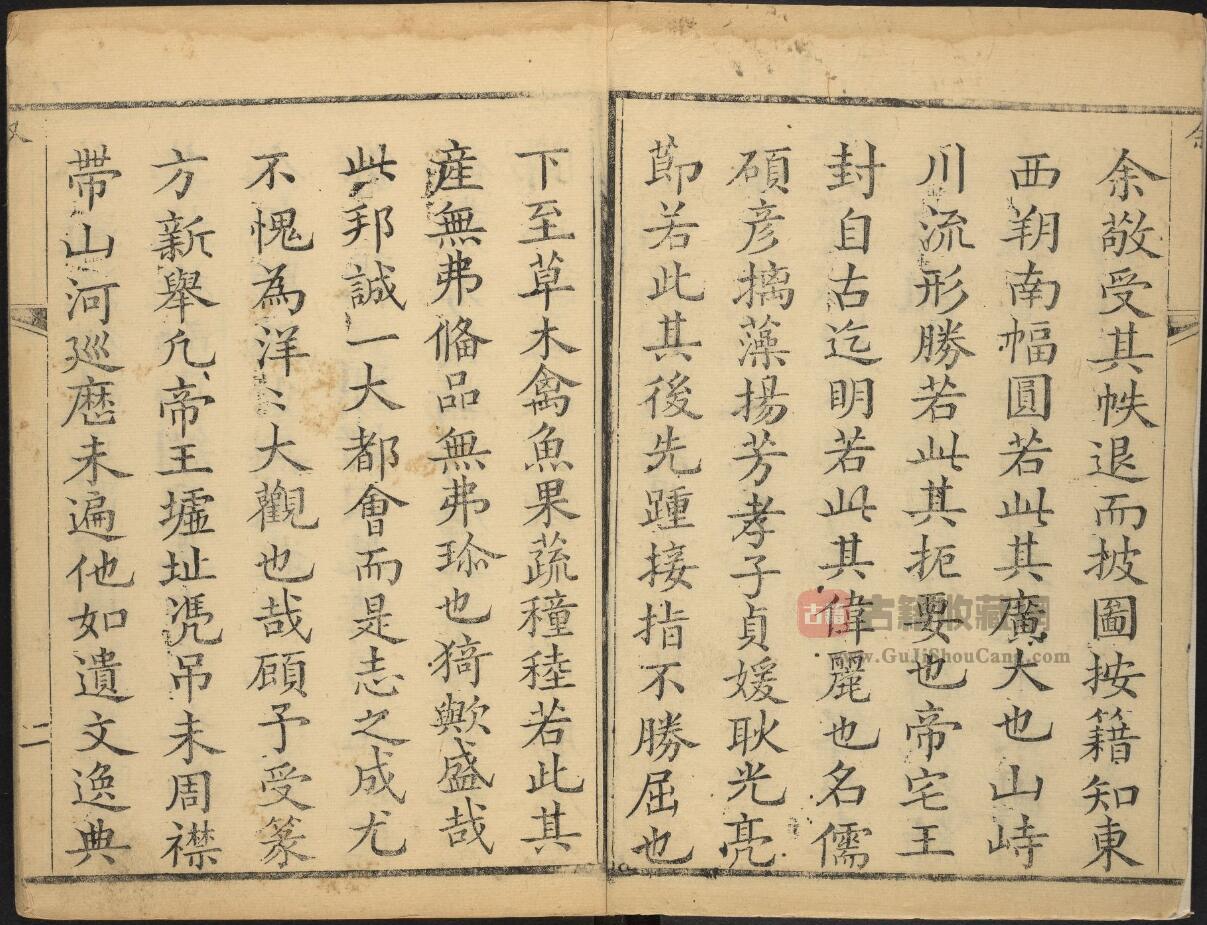 余敬受其帙退而披圖按籍知東
西朔南幅圓若此其廣大也山峙
川流形勝若此其扼要也帝宅王
封自古迄明若此其偉麗也名儒
碩彦摛藻揚芳孝子貞媛耿光亮
節若此其後先踵接指不勝屈也
下至草木禽魚果蔬穜稑若此其
産無弗俻品無弗珍也猗歟盛哉
此邦誠一大都會而是志之成尤
不愧為洋〻大觀也哉顧予受篆
方新舉凢帝王墟址凴吊未周襟
帶山河廵歷未遍他如遺文逸典
二
古籍收藏网
www.GuJiShouCang.com